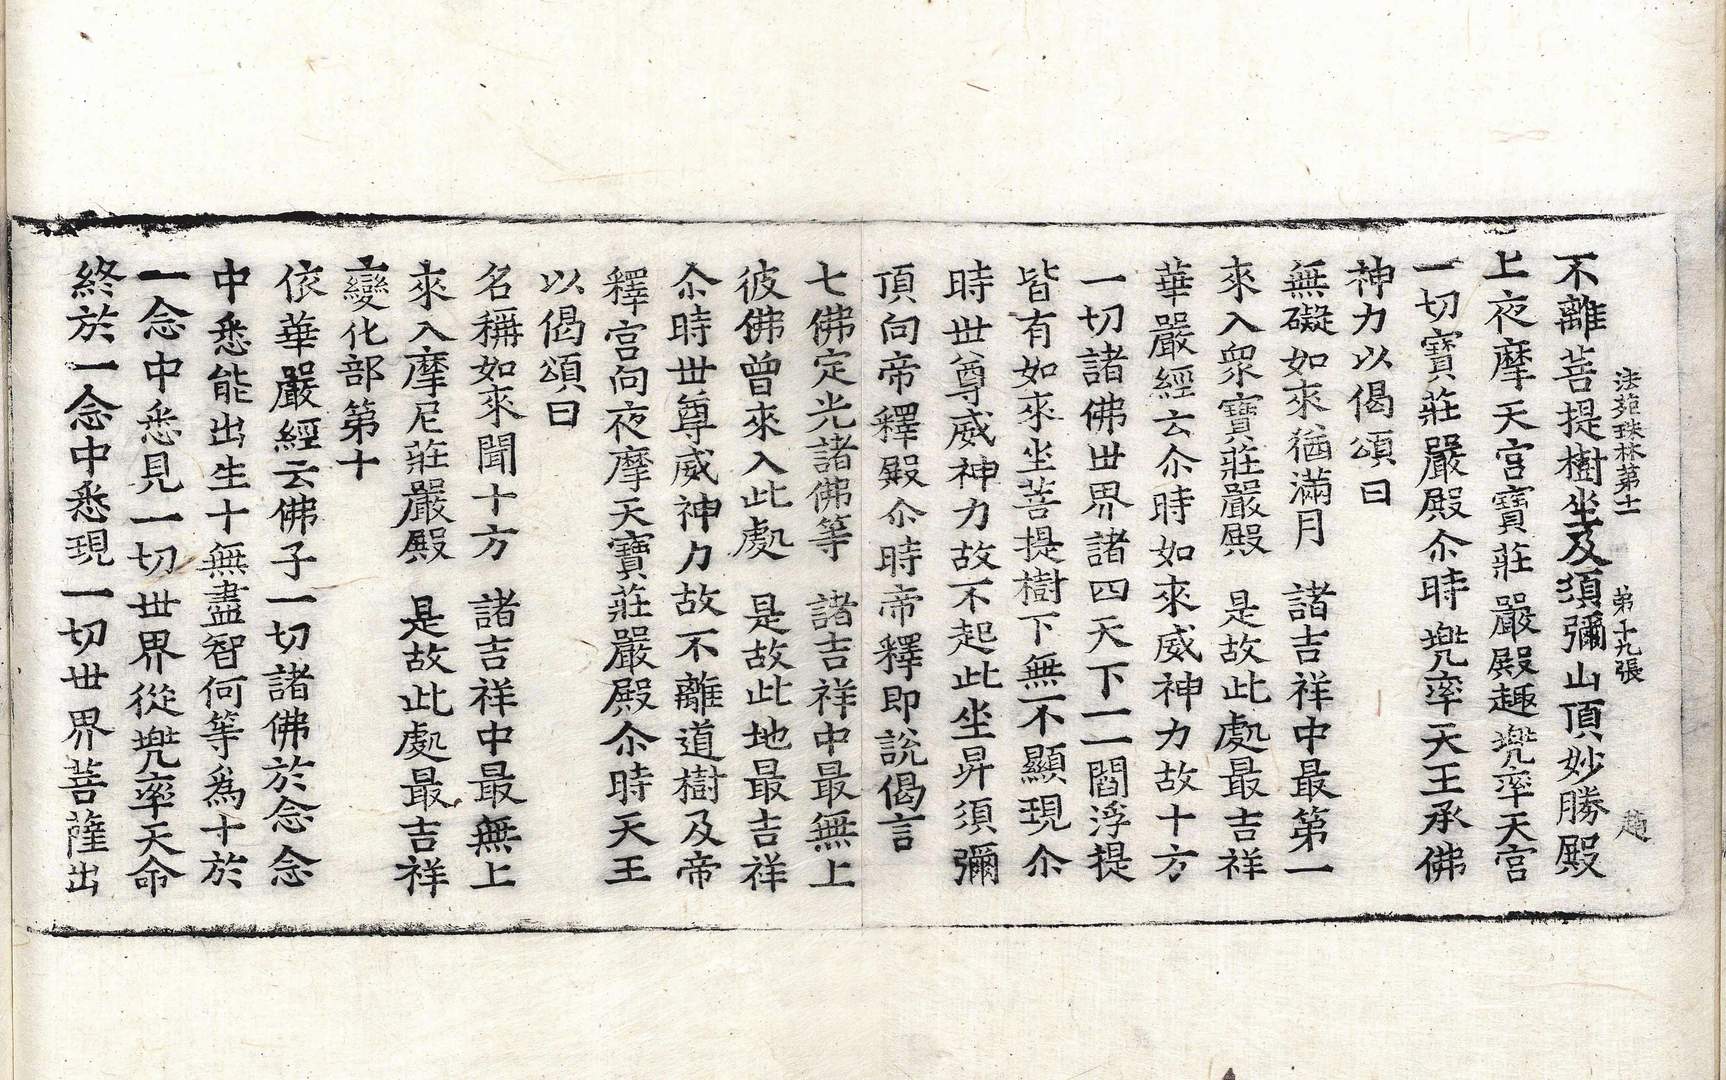 法苑珠林第十一　第十九張　趙
不離菩提樹坐及須彌山頂妙勝殿
上夜摩天宮寶莊嚴殿趣兜率天宮
一切寶莊嚴殿尒時兜率天王承佛
神力以偈頌曰
無礙如來猶滿月　諸吉祥中最第一
來入衆寶莊嚴殿　是故此處最吉祥
華嚴經云尒時如來威神力故十方
一切諸佛世界諸四天下一一閻浮提
皆有如來坐菩提樹下無不顯現尒
時世尊威神力故不起此坐昇須彌
頂向帝釋殿尒時帝釋即說偈言
七佛定光諸佛等　諸吉祥中最無上
彼佛曾來入此處　是故此地最吉祥
尒時世尊威神力故不離道樹及帝
釋宮向夜摩天寶莊嚴殿尒時天王
以偈頌曰
名稱如來聞十方　諸吉祥中最無上
來入摩尼莊嚴殿　是故此處最吉祥
變化部第十
依華嚴經云佛子一切諸佛於念念
中悉能出生十無盡智何等爲十於
一念中悉見一切世界從兜率天命
終於一念中悉現一切世界菩薩出